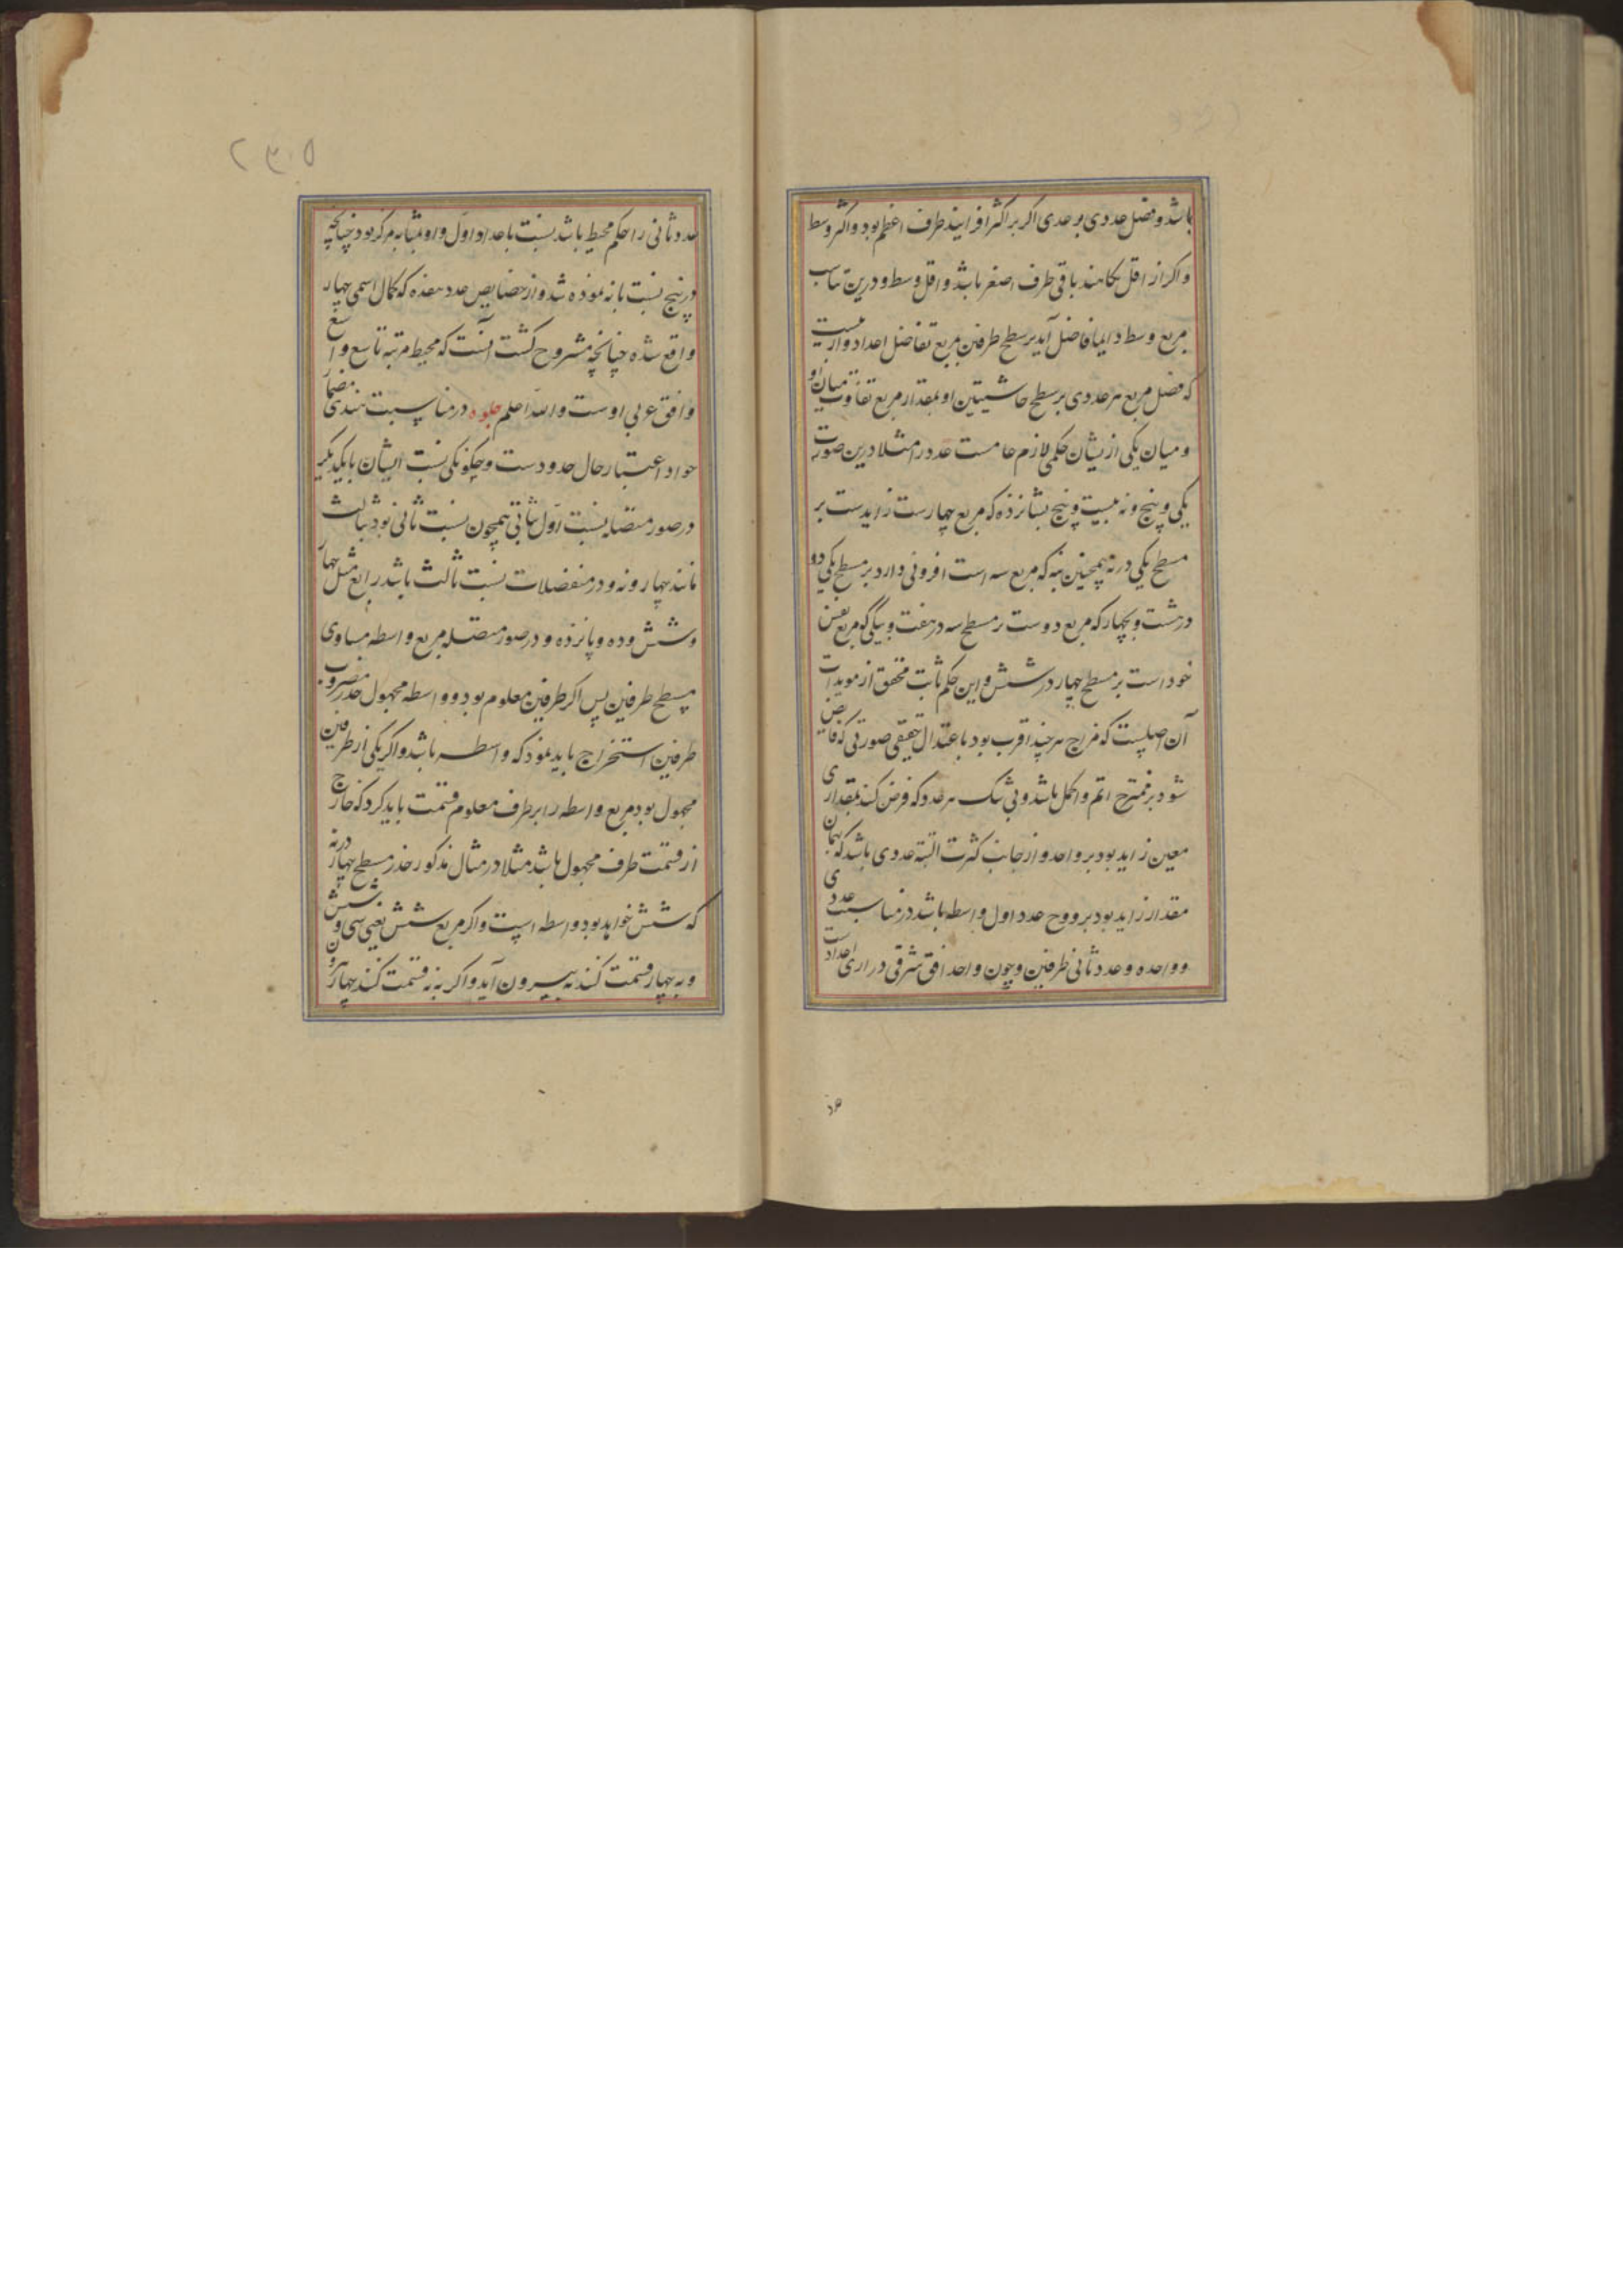 باشد و فضل عددی بر عددی اکر بر اکثر افزایند طرف اعظم بود و اکثر وسط
و اکر از اقل بکاهند باقی طرف اصغر باشد و اقل وسط و درین تناسب
مربع وسط دایما فاضل آید بر سطح طرفین بمربع تفاضل اعداد و ازینست
که فضل مربع هر عددی بر سطح حاشیتین او بمقدار مربع تفاوت میان او
و میان یکی ازیشان حکمی لازم عامست عدد را مثلا درین صورت
یکی و پنج و نه بیست و پنج بشانزده که مربع چهارست زایدست بر
مسطح یکی در نه همچنین بنه که مربع سه است افزونی دارد بر مسطح یکی دو
در هشت و بچهار که مربع دوست بر مسطح سه در هفت و بیکی که مربع نفس
خود است بر مسطح چهار در شش و این حکم ثابت محقق از مویدات
آن اصلیست که مزاج هر چند اقرب بود باعتدال حقیقی صورتی که فایض
شود بر ممتزج اتم و اکمل باشد و بی شک هر عدد که فرض کنند بمقداری
معین زاید بود بر واحد و از جانب کثرت البته عددی باشد که بهمان
مقدار زاید بود برو و ح عدد اول واسطه باشد در مناسبت عددی
و واحد و عدد ثانی طرفین و چون واحد افق شرقی دراری اعداد است
عدد ثانی را حکم محیط باشد بنسبت با عداد اول و او بمثابه مرکز بود چنانچه
در پنج نسبت با نه نموده شد و از خصایص عدد هفده که کمال اسمی چهار
واقع شده چنانچه مشروح کشت آنست که محیط مرتبه تاسع و ا
و افق عربی اوست والله اعلم جلوه در مناسبت هندسی مضمار
حواد اعتبار حال حدودست و چکونکی نسبت ایشان بایکدیکر
در صور متصله نسبت اول بثانی همچون نسبت ثانی بود بثالث
مانند چهار و نه و در منفصلات نسبت ثالث باشد برابع مثل چهار
و شش و ده و پانزده و در صور متصله مربع واسطه مساوی
مسطح طرفین پس اکر طرفین معلوم بود و واسطه مجهول جذر مضروب
طرفین استخراج باید نمود که واسطه باشد و اکر یکی از طرفین
مجهول بود مربع واسطه را بر طرف معلوم قسمت باید کرد که خارج
از قسمت طرف مجهول باشد مثلا در مثال مذکور جذر مسطح چهار در نه
که شش خواهد بود واسطه است و اکر مربع شش یعنی سی و شش
و به چهار قسمت کنند نه بیرون آید و اکر به نه قسمت کنند چهار بیرون